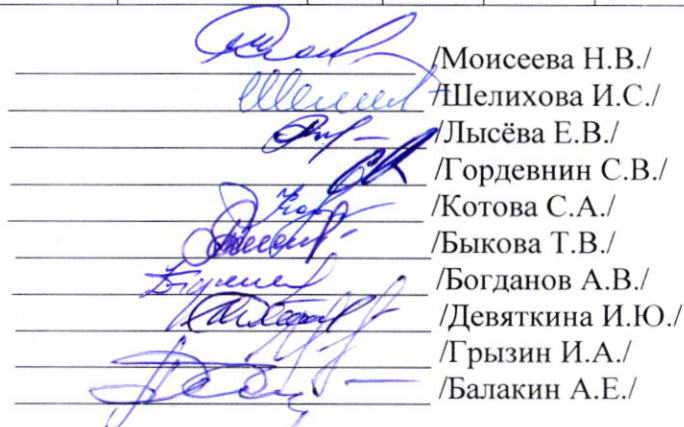 /Моисеева Н.В./
/Шелихова И.С./
/Лысёва Е.В./
/Гордевнин С.В./
/Котова С.А./
/Быкова Т.В./
/Богданов А.В./
/Девяткина И.Ю./
/Грызин И.А./
/Балакин А.Е./